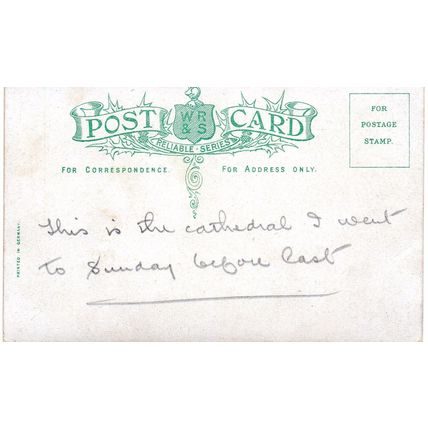 POST CARD
WR
& S
RELIABLE SERIES
FOR
POSTAGE
STAMP.
FOR CORRESPONDENCE.
FOR ADDRESS ONLY.
This is the cathedral I went
to Sunday before Last
PRINTED IN GERMANY.